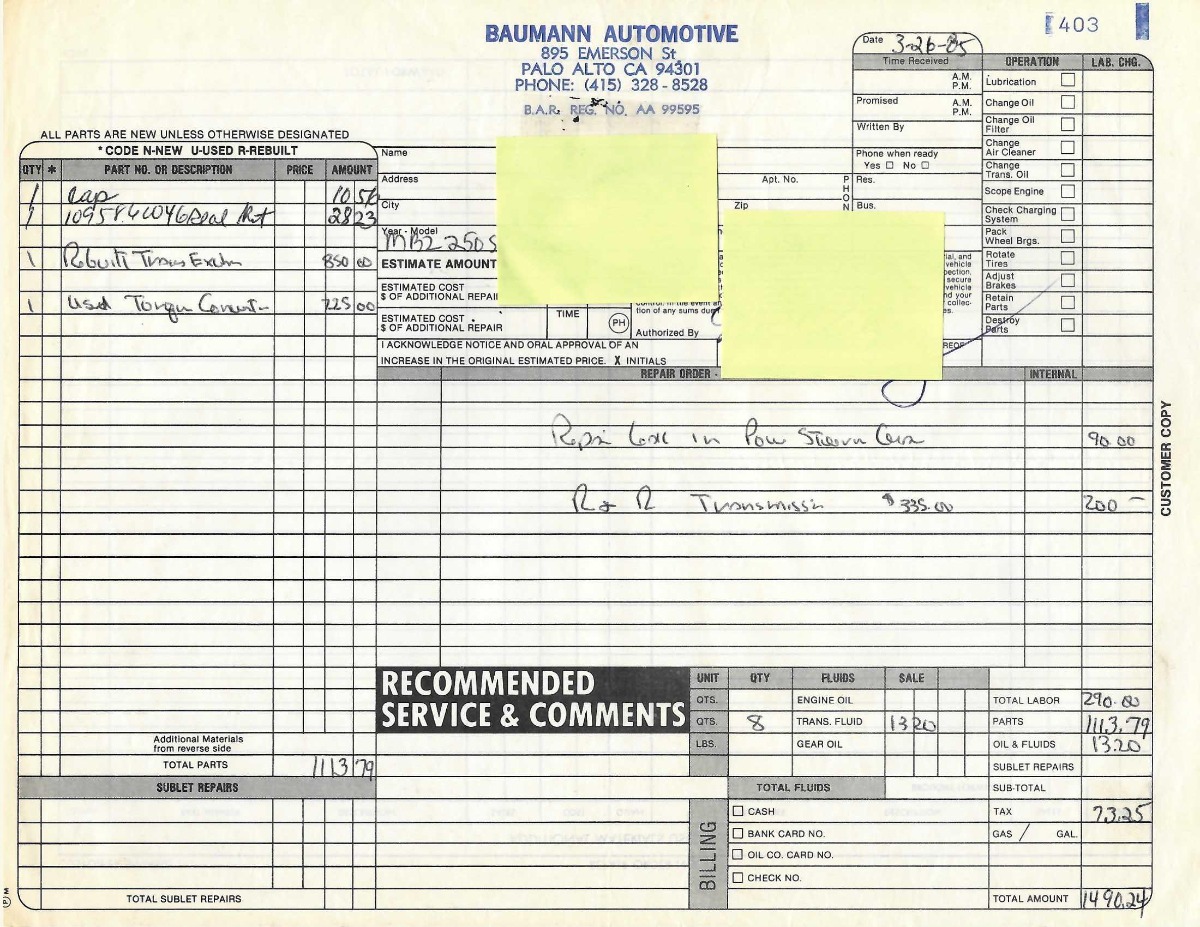 403
BAUMANN AUTOMOTIVE
895 EMERSON St.
PALO ALTO CA 94301
PHONE: (415) 328-8528
B.A.R. REG. NO. AA 99595
Date 3-26-85
Time Received
A.M.
P.M.
Promised
A.M.
P.M.
Written By
Phone when ready
Yes No
Res.
Bus.
OPERATION LAB. CHG.
Lubrication
Change Oil
Change Oil Filter
Change Air Cleaner
Change Trans. Oil
Scope Engine
Check Charging System
Pack Wheel Brgs.
Rotate Tires
Adjust Brakes
Retain Parts
Destroy Parts
ALL PARTS ARE NEW UNLESS OTHERWISE DESIGNATED
*CODE N-NEW U-USED R-REBUILT
QTY * PART NO. OR DESCRIPTION PRICE AMOUNT
1 Cap 10 56
1 Seal 28 23
1 Rebuilt Trans 850 00
1 Used Torque 225 00
Name
Address
Apt. No.
PHON
City
Zip
Year - Model
MBZ 250S
ESTIMATE AMOUNT
ESTIMATED COST
$ OF ADDITIONAL REPAI
ESTIMATED COST
$ OF ADDITIONAL REPAIR
TIME
PH
control. In the event
tion of any sums du
Authorized By
ial, and
vehicle
pection,
secure
vehicle
nd your
collec-
es.
REOF
I ACKNOWLEDGE NOTICE AND ORAL APPROVAL OF AN
INCREASE IN THE ORIGINAL ESTIMATED PRICE. X INITIALS
REPAIR ORDER - INTERNAL
Leak in Power Steering 90.00
R & R Transmission $335.00 200 —
CUSTOMER COPY
RECOMMENDED
SERVICE & COMMENTS
UNIT QTY FLUIDS SALE
QTS. ENGINE OIL
QTS. 8 TRANS. FLUID 13 20
LBS. GEAR OIL
TOTAL FLUIDS
Additional Materials
from reverse side
TOTAL PARTS 1113 79
SUBLET REPAIRS
TOTAL SUBLET REPAIRS
BILLING
CASH
BANK CARD NO.
OIL CO. CARD NO.
CHECK NO.
TOTAL LABOR 290.00
PARTS 1113.79
OIL & FLUIDS 13.20
SUBLET REPAIRS
SUB-TOTAL
TAX 73.25
GAS / GAL.
TOTAL AMOUNT 1490.24